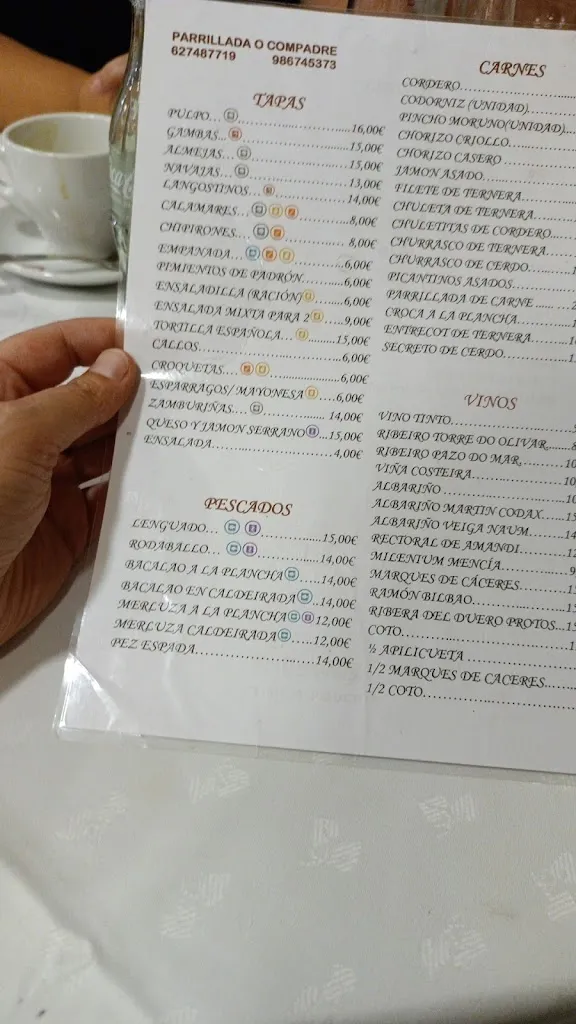 PARRILLADA O COMPADRE
627487719 986745373
TAPAS
PULPO... ..................16,00€
GAMBAS... ..................15,00€
ALMEJAS... ..................15,00€
NAVAJAS... ..................13,00€
LANGOSTINOS... ..................14,00€
CALAMARES... ............8,00€
CHIPIRONES... ............8,00€
EMPANADA... ............6,00€
PIMIENTOS DE PADRÓN...........6,00€
ENSALADILLA (RACIÓN) .......6,00€
ENSALADA MIXTA PARA 2 .....9,00€
TORTILLA ESPAÑOLA... ........15,00€
CALLOS..............................6,00€
CROQUETAS... ..................6,00€
ESPARRAGOS/ MAYONESA ....6,00€
ZAMBURIÑAS... .............. 14,00€
QUESO Y JAMON SERRANO ...15,00€
ENSALADA..........................4,00€
PESCADOS
LENGUADO... ..................15,00€
RODABALLO... ..................14,00€
BACALAO A LA PLANCHA .....14,00€
BACALAO EN CALDEIRADA ..14,00€
MERLUZA A LA PLANCHA 12,00€
MERLUZA CALDEIRADA .....12,00€
PEZ ESPADA........................14,00€
CARNES
CORDERO..................
CODORNIZ (UNIDAD)........
PINCHO MORUNO(UNIDAD)...
CHORIZO CRIOLLO...........
CHORIZO CASERO ...........
JAMON ASADO..............
FILETE DE TERNERA.........
CHULETA DE TERNERA........
CHULETITAS DE CORDERO.....
CHURRASCO DE TERNERA......
CHURRASCO DE CERDO........
PICANTINOS ASADOS.........
PARRILLADA DE CARNE .....
CROCA A LA PLANCHA........
ENTRECOT DE TERNERA.......
SECRETO DE CERDO..........
VINOS
VINO TINTO................
RIBEIRO TORRE DO OLIVAR...
RIBEIRO PAZO DO MAR.......
VIÑA COSTEIRA.............
ALBARIÑO .................
ALBARIÑO MARTIN CODAX.....
ALBARIÑO VEIGA NAUM.......
RECTORAL DE AMANDI........
MILENIUM MENCÍA...........
MARQUES DE CÁCERES........
RAMÓN BILBAO..............
RIBERA DEL DUERO PROTOS...
COTO......................
½ APILICUETA .............
1/2 MARQUES DE CACERES....
1/2 COTO..................